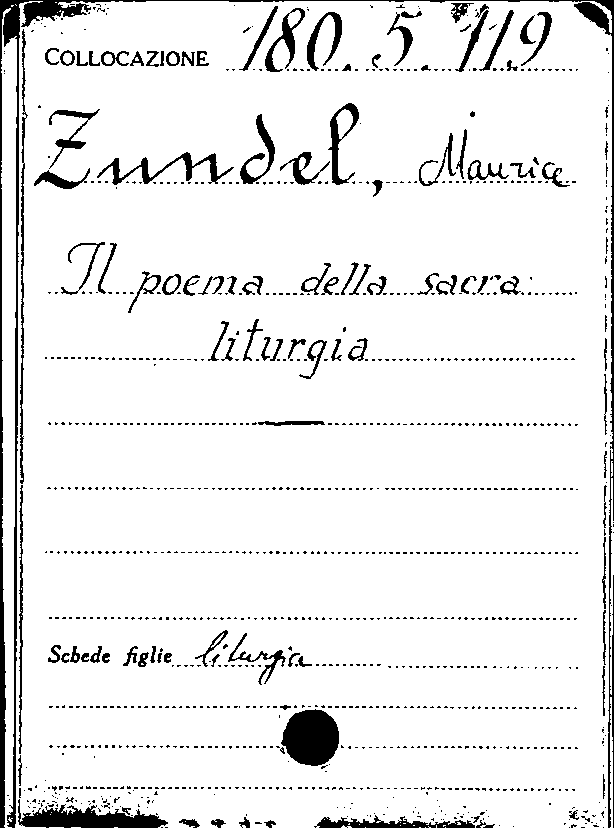 COLLOCAZIONE 180.5.119
Zundel, Maurice
Il poema della sacra
liturgia
Schede figlie liturgia